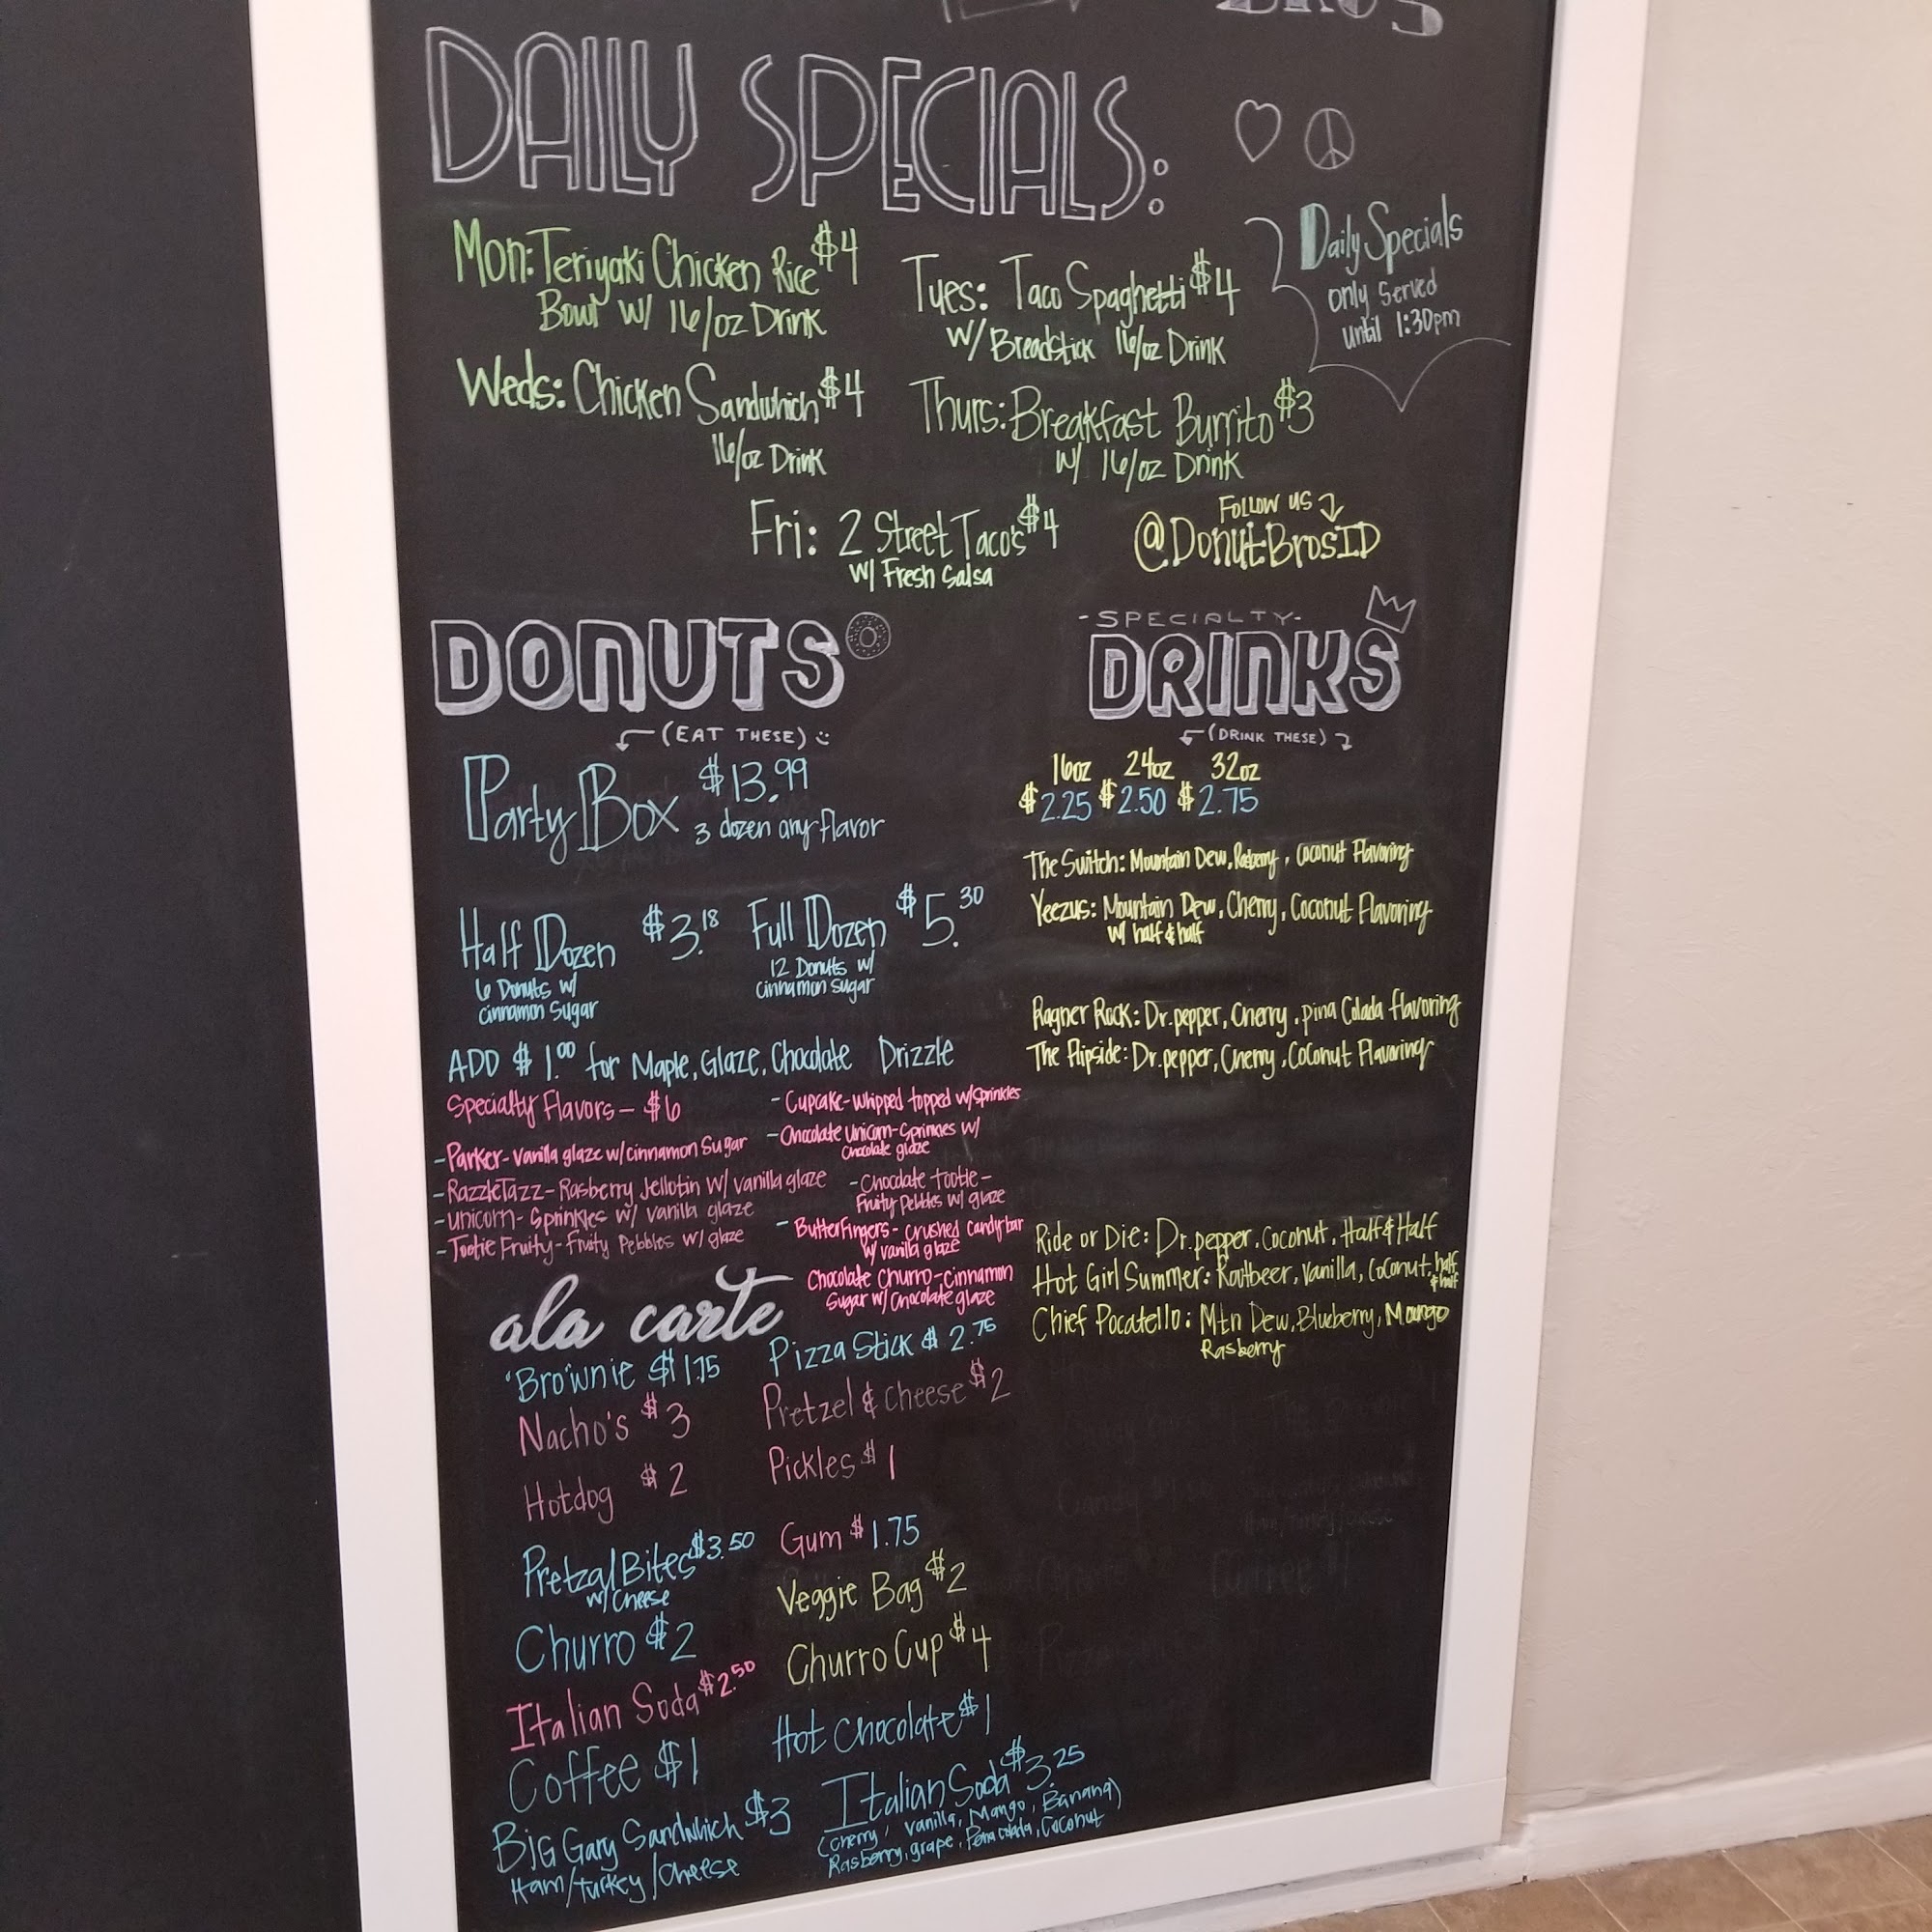 BROS
DAILY SPECIALS:
Mon: Teriyaki Chicken Rice $4
Bowl w/ 16/oz Drink
Tues: Taco Spaghetti $4
w/ Breadstick 16/oz Drink
Daily Specials
only served
until 1:30pm
Weds: Chicken Sandwhich, $4
16/oz Drink
Thurs: Breakfast Burrito $3
w/ 16/oz Drink
Fri: 2 Street Taco's $4
w/ Fresh Salsa
Follow us
@DonutBrosID
DONUTS
(EAT THESE)
Party Box $13.99
3 dozen any flavor
Half Dozen $3.18
6 Donuts w/
cinnamon sugar
Full Dozen $5.30
12 Donuts w/
cinnamon sugar
ADD $1.00 for Maple, Glaze, Chocolate Drizzle
Specialty Flavors - $6
- Parker - vanilla glaze w/cinnamon Sugar
- RazzleTazz - Rasberry Jellotin w/ vanilla glaze
- unicorn - Sprinkles w/ vanilla glaze
- Tootie Fruity - Fruity Pebbles w/ glaze
- Cupcake - whipped topped w/sprinkles
- Chocolate Unicorn - Sprinkles w/
Chocolate glaze
- Chocolate Tootie -
Fruity Pebbles w/ glaze
- ButterFingers - crushed candy bar
w/ vanilla glaze
Chocolate Churro - cinnamon
Sugar w/ Chocolate glaze
- SPECIALTY -
DRINKS
(DRINK THESE)
16oz 24oz 32oz
$2.25 $2.50 $2.75
The Switch: Mountain Dew, Rasberry, Coconut Flavoring
Yeezus: Mountain Dew, Cherry, Coconut Flavoring
w/ half & half
Ragner Rock: Dr. pepper, Cherry, pina Colada flavoring
The Flipside: Dr. pepper, Cherry, Coconut Flavoring
Ride or Die: Dr. pepper, Coconut, Half & Half
Hot Girl Summer: Rootbeer, Vanilla, Coconut, half
& half
Chief Pocatello: Mtn Dew, Blueberry, Mango
Rasberry
ala carte
Brownie $1.75
Nacho's $3
Hotdog $2
Pretzal Bites $3.50
w/ Cheese
Churro $2
Italian Soda $2.50
Coffee $1
Big Gary Sandwhich $3
Ham/Turkey/Cheese
Pizza Stick $2.75
Pretzel & Cheese $2
Pickles $1
Gum $1.75
Veggie Bag $2
Churro Cup $4
Hot Chocolate $1
Italian Soda $3.25
(Cherry, Vanilla, Mango, Banana)
Rasberry, grape, Pena colada, Coconut